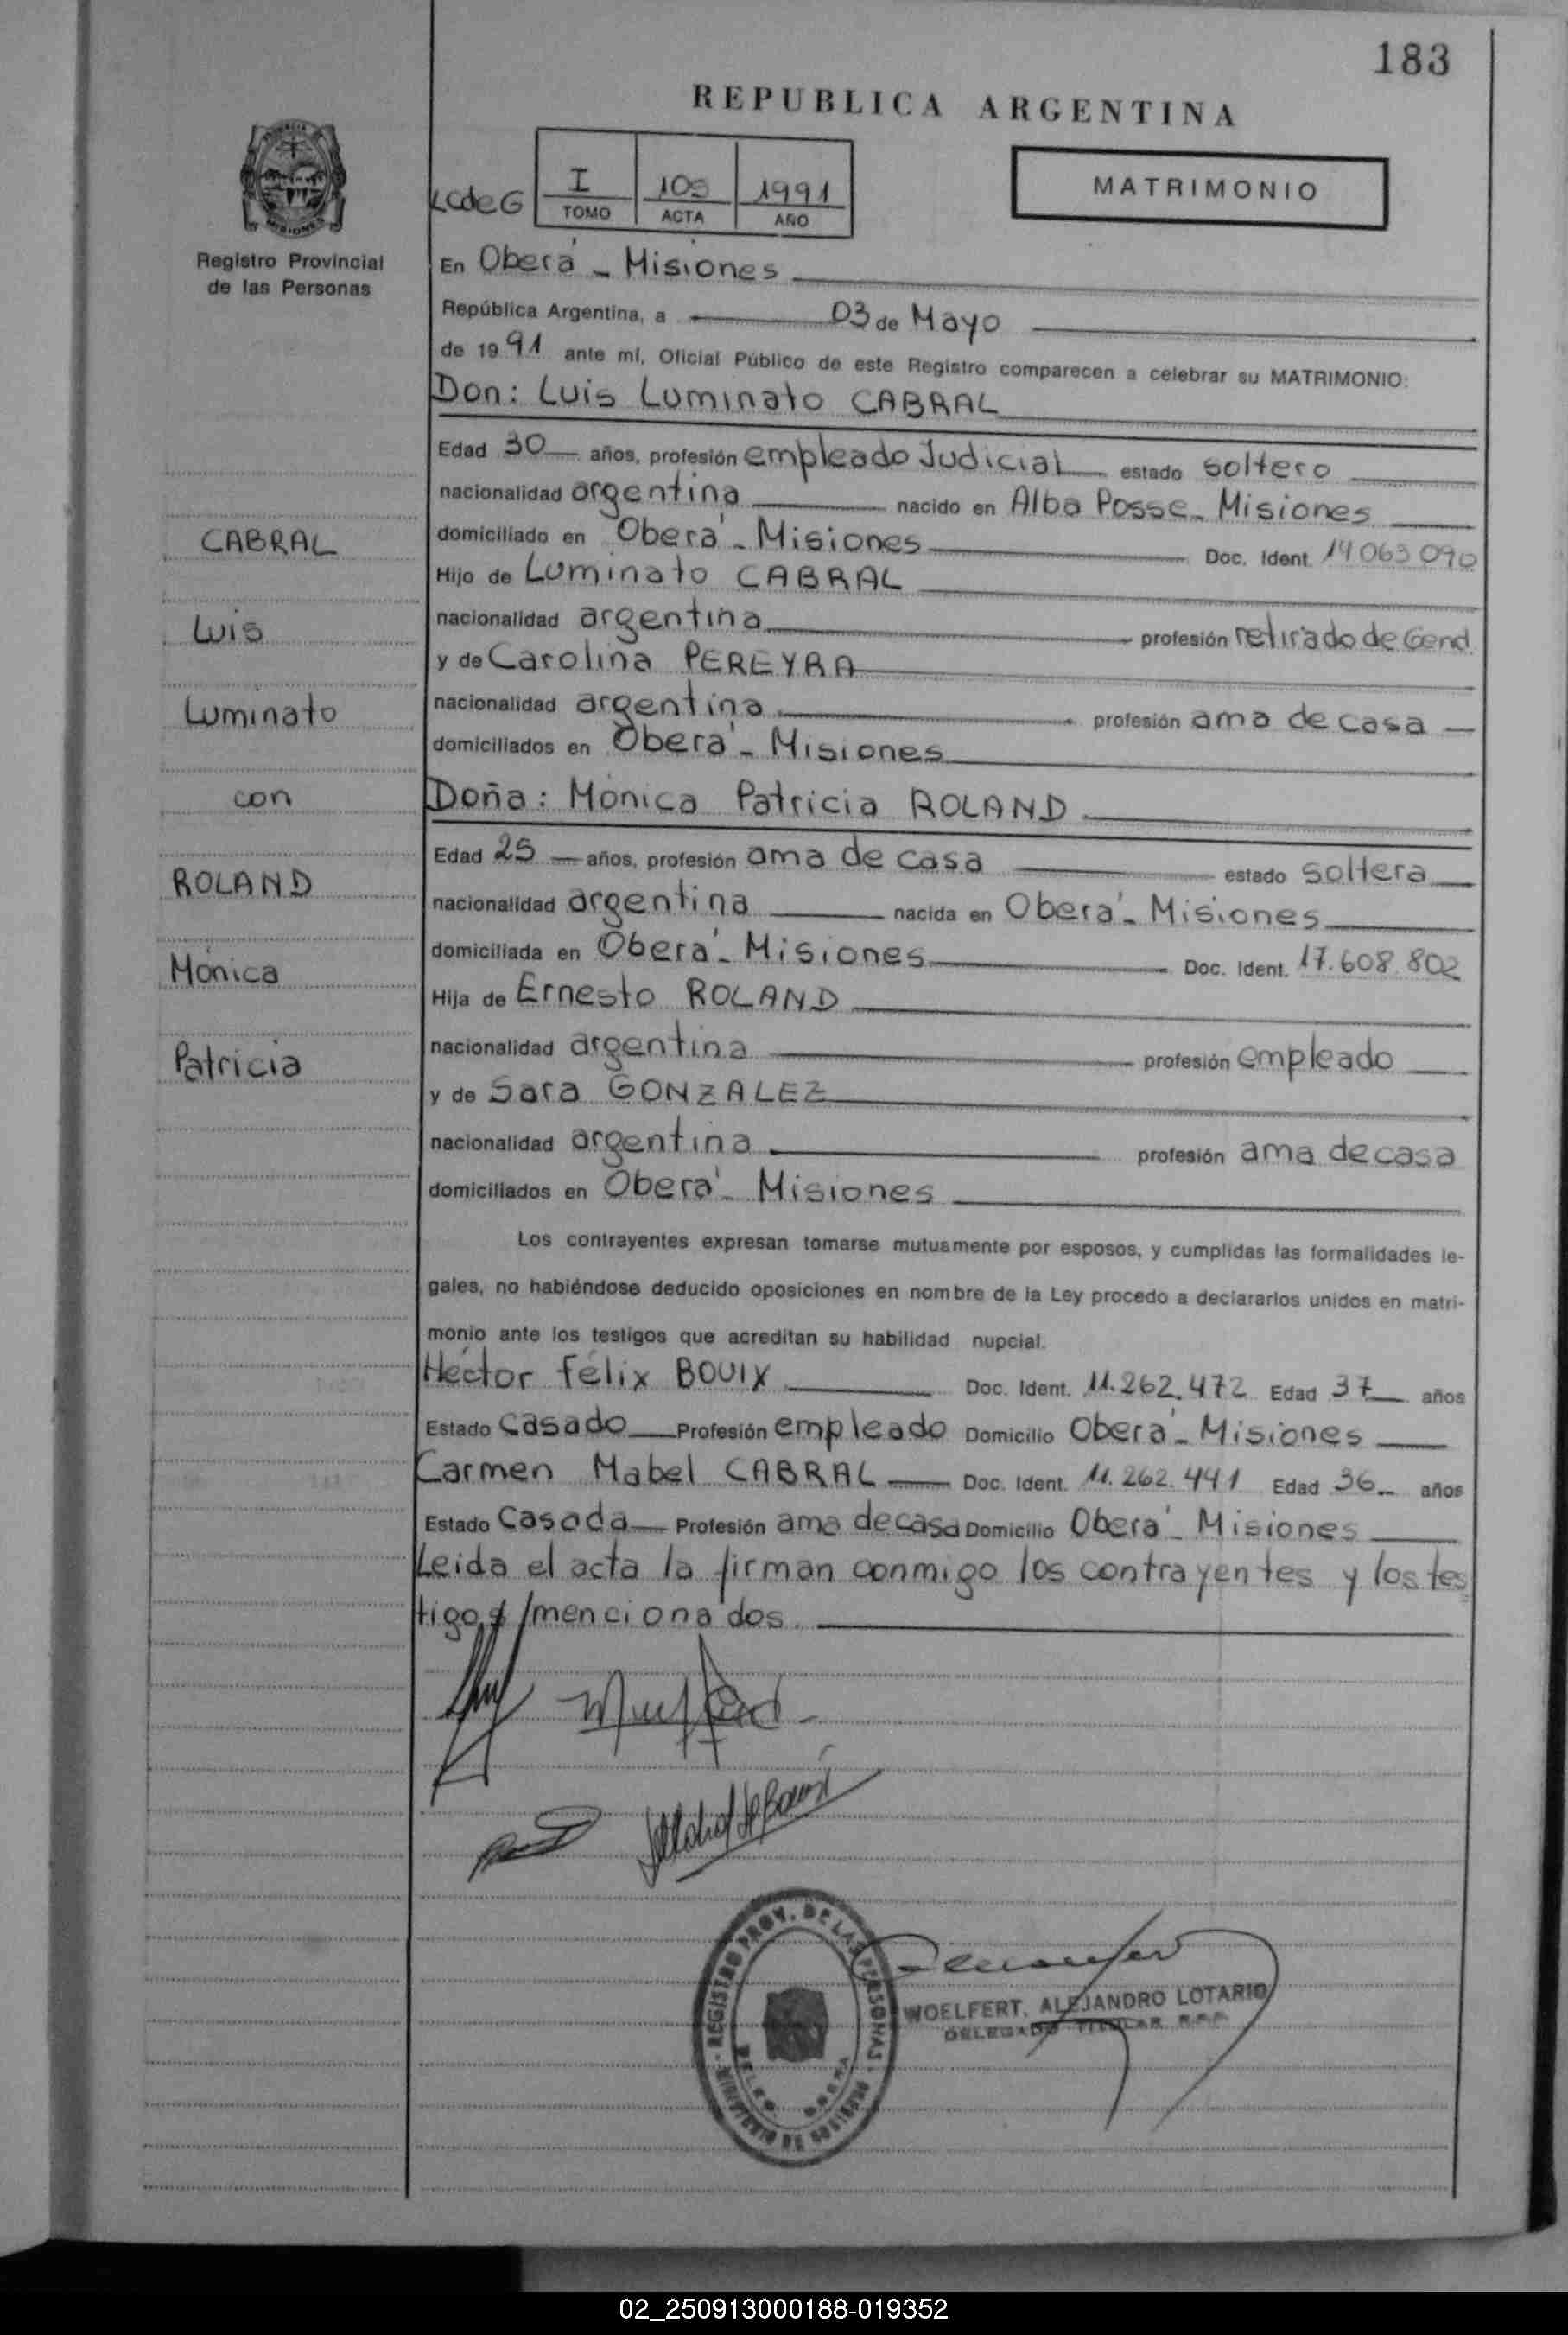 183
REPUBLICA ARGENTINA
LCdeG
I
TOMO
ACTA
1991
AÑO
MATRIMONIO
Registro Provincial
de las Personas
En Oberá - Misiones
República Argentina, a 03 de Mayo
de 1991 ante mí, Oficial Público de este Registro comparecen a celebrar su MATRIMONIO:
Don: Luis Luminato CABRAL
Edad 30 años, profesión empleado Judicial estado soltero
nacionalidad argentina nacido en Alba Posse - Misiones
domiciliado en Oberá - Misiones Doc. Ident. 14 063 090
Hijo de Luminato CABRAL
nacionalidad argentina profesión retirado de Gend.
y de Carolina PEREYRA
nacionalidad argentina profesión ama de casa
domiciliados en Oberá - Misiones
Doña: Mónica Patricia ROLAND
Edad 25 años, profesión ama de casa estado soltera
nacionalidad argentina nacida en Oberá - Misiones
domiciliada en Oberá - Misiones Doc. Ident. 17.608.802
Hija de Ernesto ROLAND
nacionalidad argentina profesión empleado
y de Sara GONZALEZ
nacionalidad argentina profesión ama de casa
domiciliados en Oberá - Misiones
CABRAL
Luis
Luminato
con
ROLAND
Mónica
Patricia
Los contrayentes expresan tomarse mutuamente por esposos, y cumplidas las formalidades le-
gales, no habiéndose deducido oposiciones en nombre de la Ley procedo a declararlos unidos en matri-
monio ante los testigos que acreditan su habilidad nupcial.
Héctor Félix BOUIX Doc. Ident. 11.262.472 Edad 37 años
Estado casado Profesión empleado Domicilio Oberá - Misiones
Carmen Mabel CABRAL Doc. Ident. 11.262.441 Edad 36 años
Estado casada Profesión ama de casa Domicilio Oberá - Misiones
Leida el acta la firman conmigo los contrayentes y los tes
tigos mencionados.
REGISTRO PROV. DE LAS PERSONAS
WOELFERT, ALEJANDRO LOTARIO
DELEGADO TITULAR R.P.P.
02_250913000188-019352